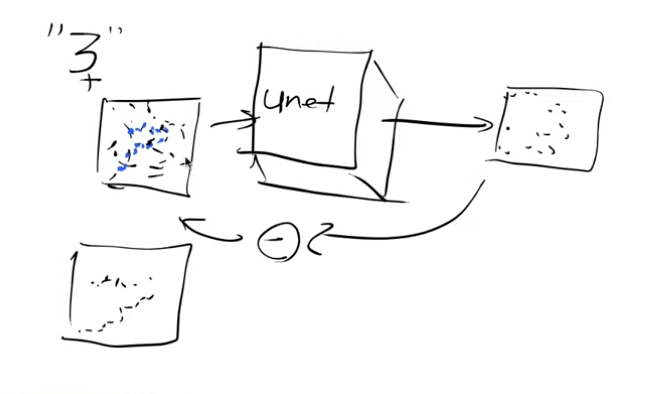 "3"
+
unet
−